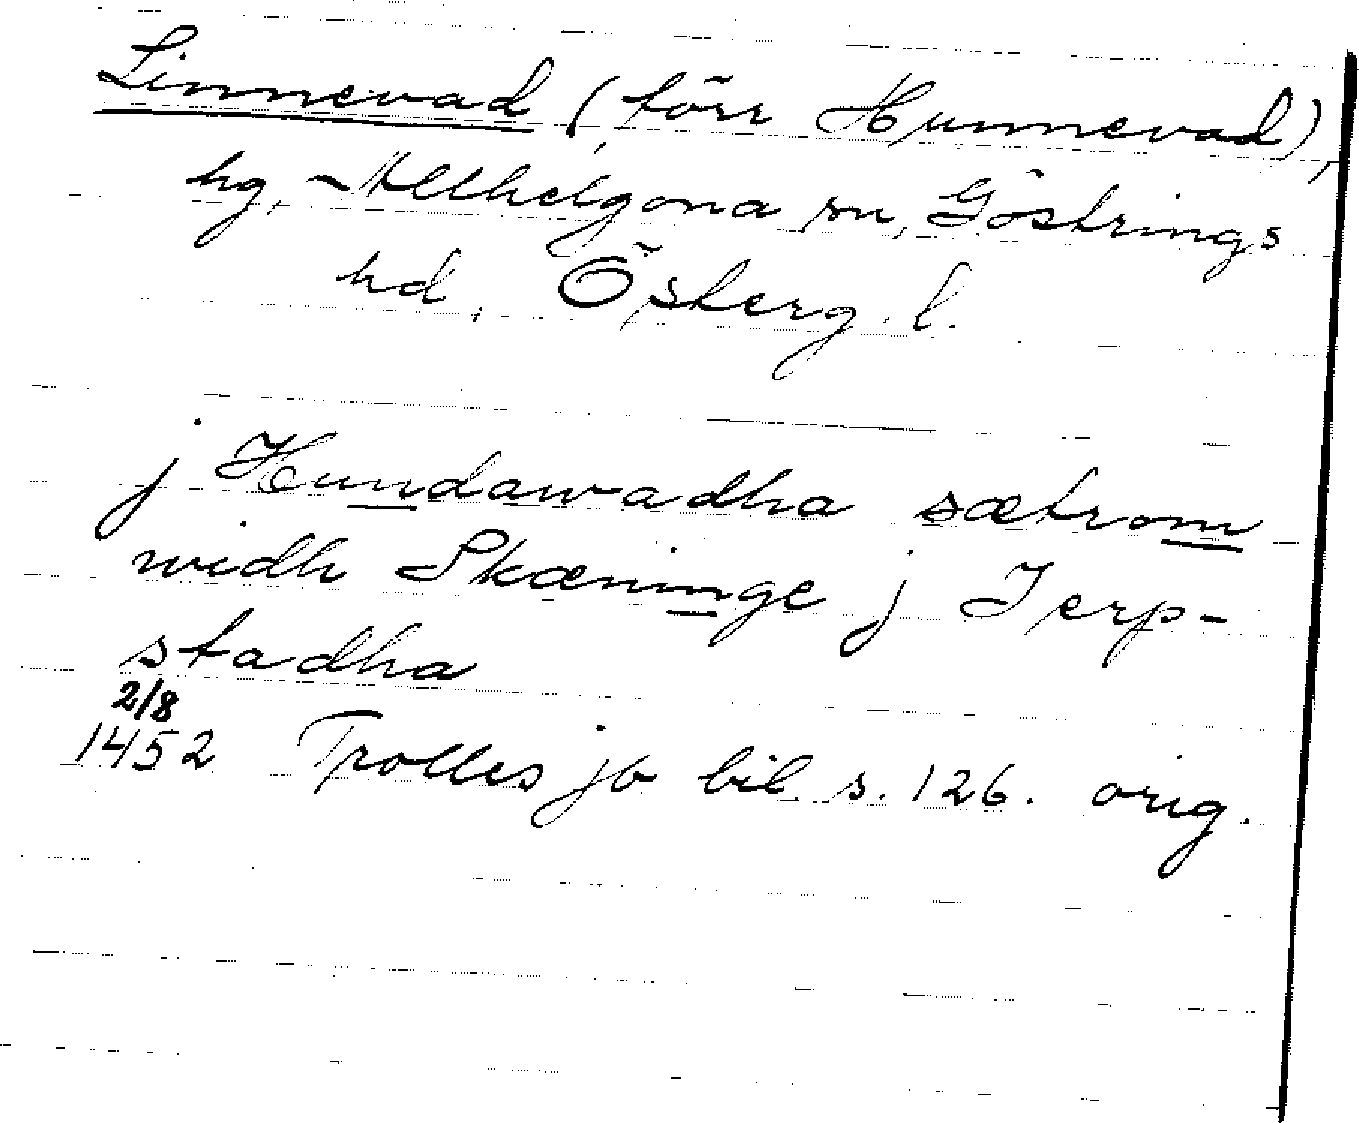 Linnevad (förr Hunnevad),
hg, Allhelgona sn, Göstrings
hd, Österg. l.
j Hundawadha sætrom
widh Skæninge j Jerp-
stadha
2/8
1452 Trolles jb bil. s. 126. orig.